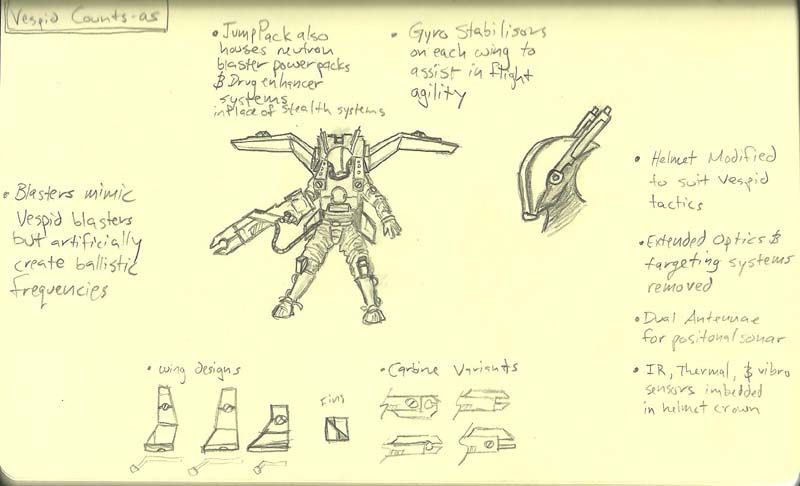 Vespid Counts-as
• JumpPack also
houses neutron
blaster powerpacks
& Drug enhancer
systems
in place of stealth systems
• Gyro Stabilisors
on each wing to
assist in flight
agility
• Blasters mimic
Vespid blasters
but artificially
create ballistic
frequencies
• Helmet Modified
to suit Vespid
tactics
• Extended Optics &
targeting systems
removed
• Dual Antennae
for positonal sonar
• IR, Thermal, & vibro
sensors imbedded
in helmet crown
• wing designs
Fins
• Carbine Variants